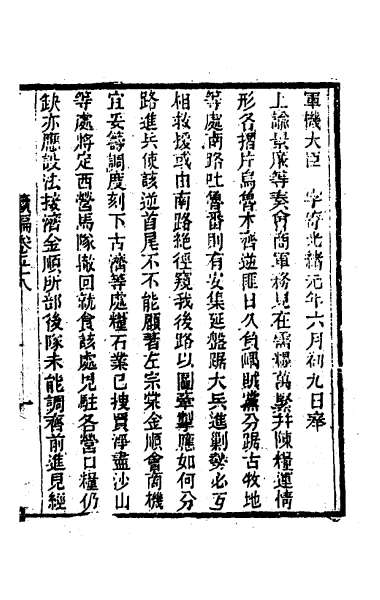 軍機大臣　字寄光緒元年六月初九日奉
上諭景廉等奏會商軍務見在需糧萬緊并陳糧運情
形各摺片烏魯木齊逆匪日久負嵎賊黨分踞古牧地
等處南路吐魯番則有安集延盤踞大兵進剿勢必互
相救援或由南路繞徑窺我後路以圖牽掣應如何分
路進兵使該逆首尾不能顧著左宗棠金順會商機
宜妥籌調度刻下古濟等處糧石業已搜買淨盡沙山
等處將定西營馬隊撤回就食該處見駐各營口糧仍
缺亦應設法接濟金順所部後隊未能調齊前進見經
續編卷五十八